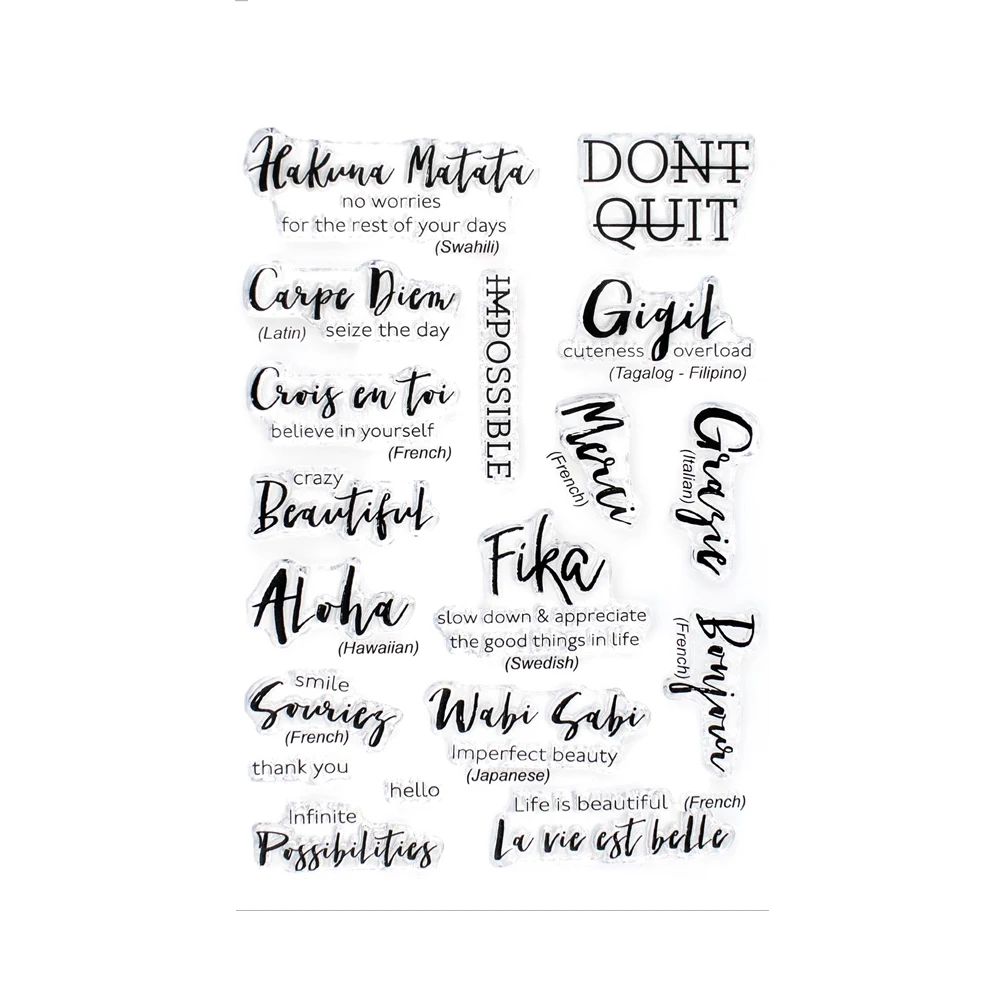 Hakuna Matata
no worries
for the rest of your days
(Swahili)
DONT
QUIT
Carpe Diem
(Latin) seize the day
IMPOSSIBLE
Gigil
cuteness overload
(Tagalog - Filipino)
Crois en toi
believe in yourself
(French)
Merci
(French)
Grazie
(Italian)
crazy
Beautiful
Fika
slow down & appreciate
the good things in life
(Swedish)
Aloha
(Hawaiian)
Bonjour
(French)
smile
Souriez
(French)
Wabi Sabi
Imperfect beauty
(Japanese)
thank you
hello
Infinite
Possibilities
Life is beautiful (French)
La vie est belle